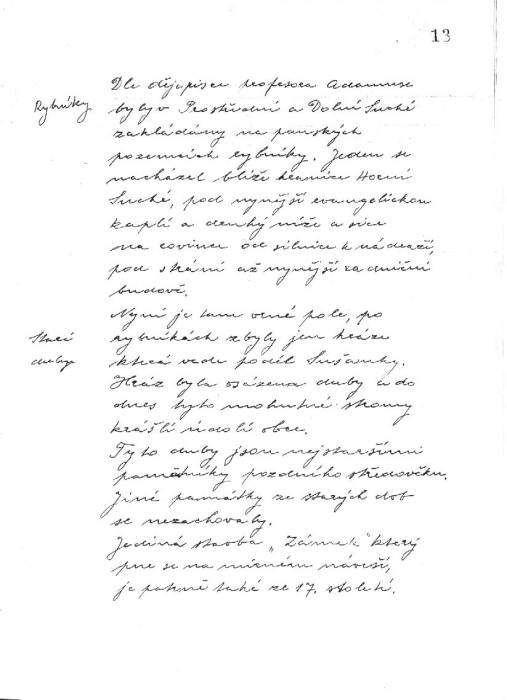 13
Dle dějepisce profesora Adamuse
Rybníky
byly v Prostřední a Dolní Suché
zakládány na panských
pozemcích rybníky. Jeden se
nacházel blíže hranice Horní
Suché, pod nynější evangelickou
kaplí a druhý níže a sice
na rovince od silnice k nádraží,
pod strání až nynější zadniční
budově.
Nyní je tam orné pole, po
Staré
rybníkách zbyly jen hráze
duby
která vede podél Sušanky.
Hráz byla osázena duby a do
dnes tyto mohutné stromy
krášlí údolí obce.
Tyto duby jsou nejstaršími
památníky pozdního středověku.
Jiné památky ze starých dob
se nezachovaly.
Jediná stavba „Zámek" který
pne se na mírném návrší,
je patrně také ze 17. století.